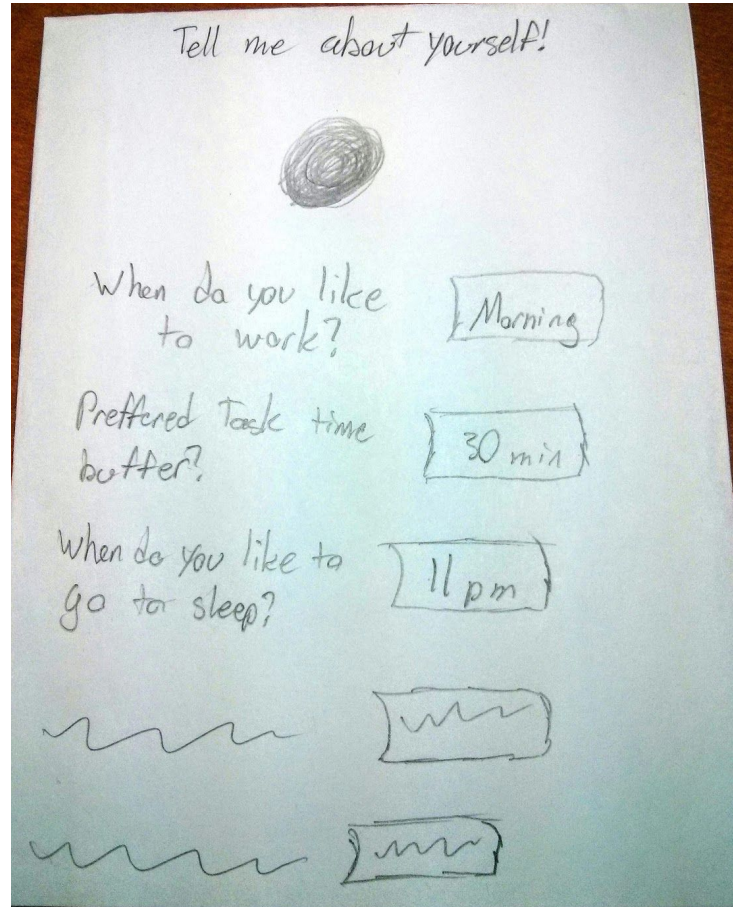 Tell me about yourself!
When do you like
to work?
Morning
Preffered Task time
buffer?
30 min
When do you like to
go to sleep?
11 pm